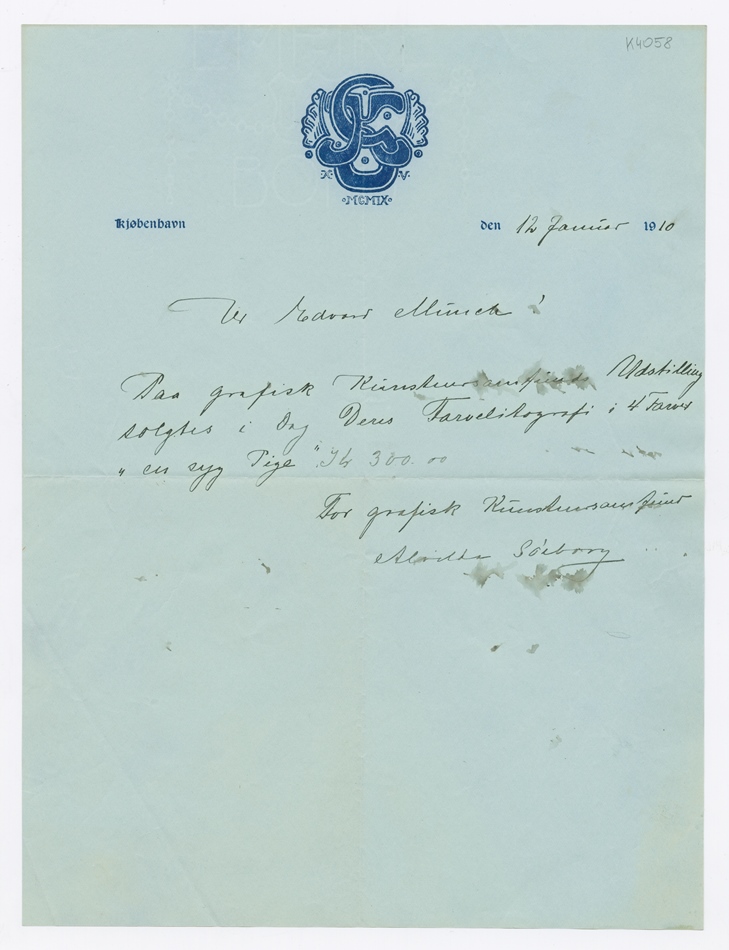 K4058
MCMIX
Kjøbenhavn den 12 Januar 1910
Hr Edvard Munch!
Paa grafisk Kunstnersamfunds Udstilling
solgtes i Dag Deres Farvelitografi i 4 Farver
„en syg Pige" 300.00
For grafisk Kunstnersamfund
Söeborg